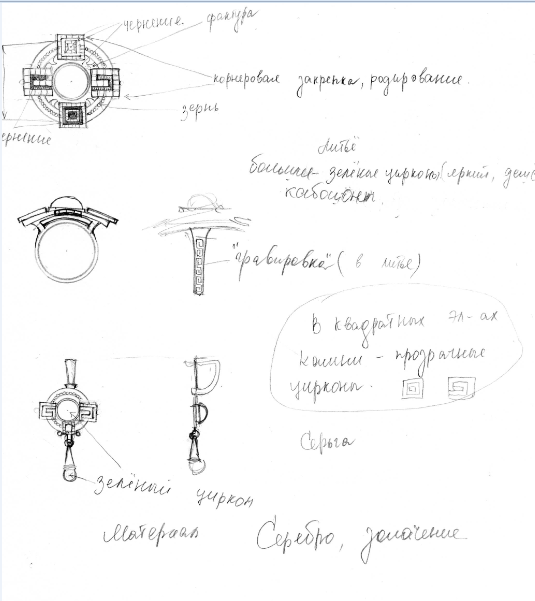 чернение. фактура
корнеровая закрепка, родирование.
зернь
ернение
Литьё
большие - зелёные цирконы (яркий,
кабошон
"гравировка" (в литье)
В квадратных эл-ах
камни - прозрачные
цирконы.
Серьга
зелёный циркон
Материал Серебро, золочение